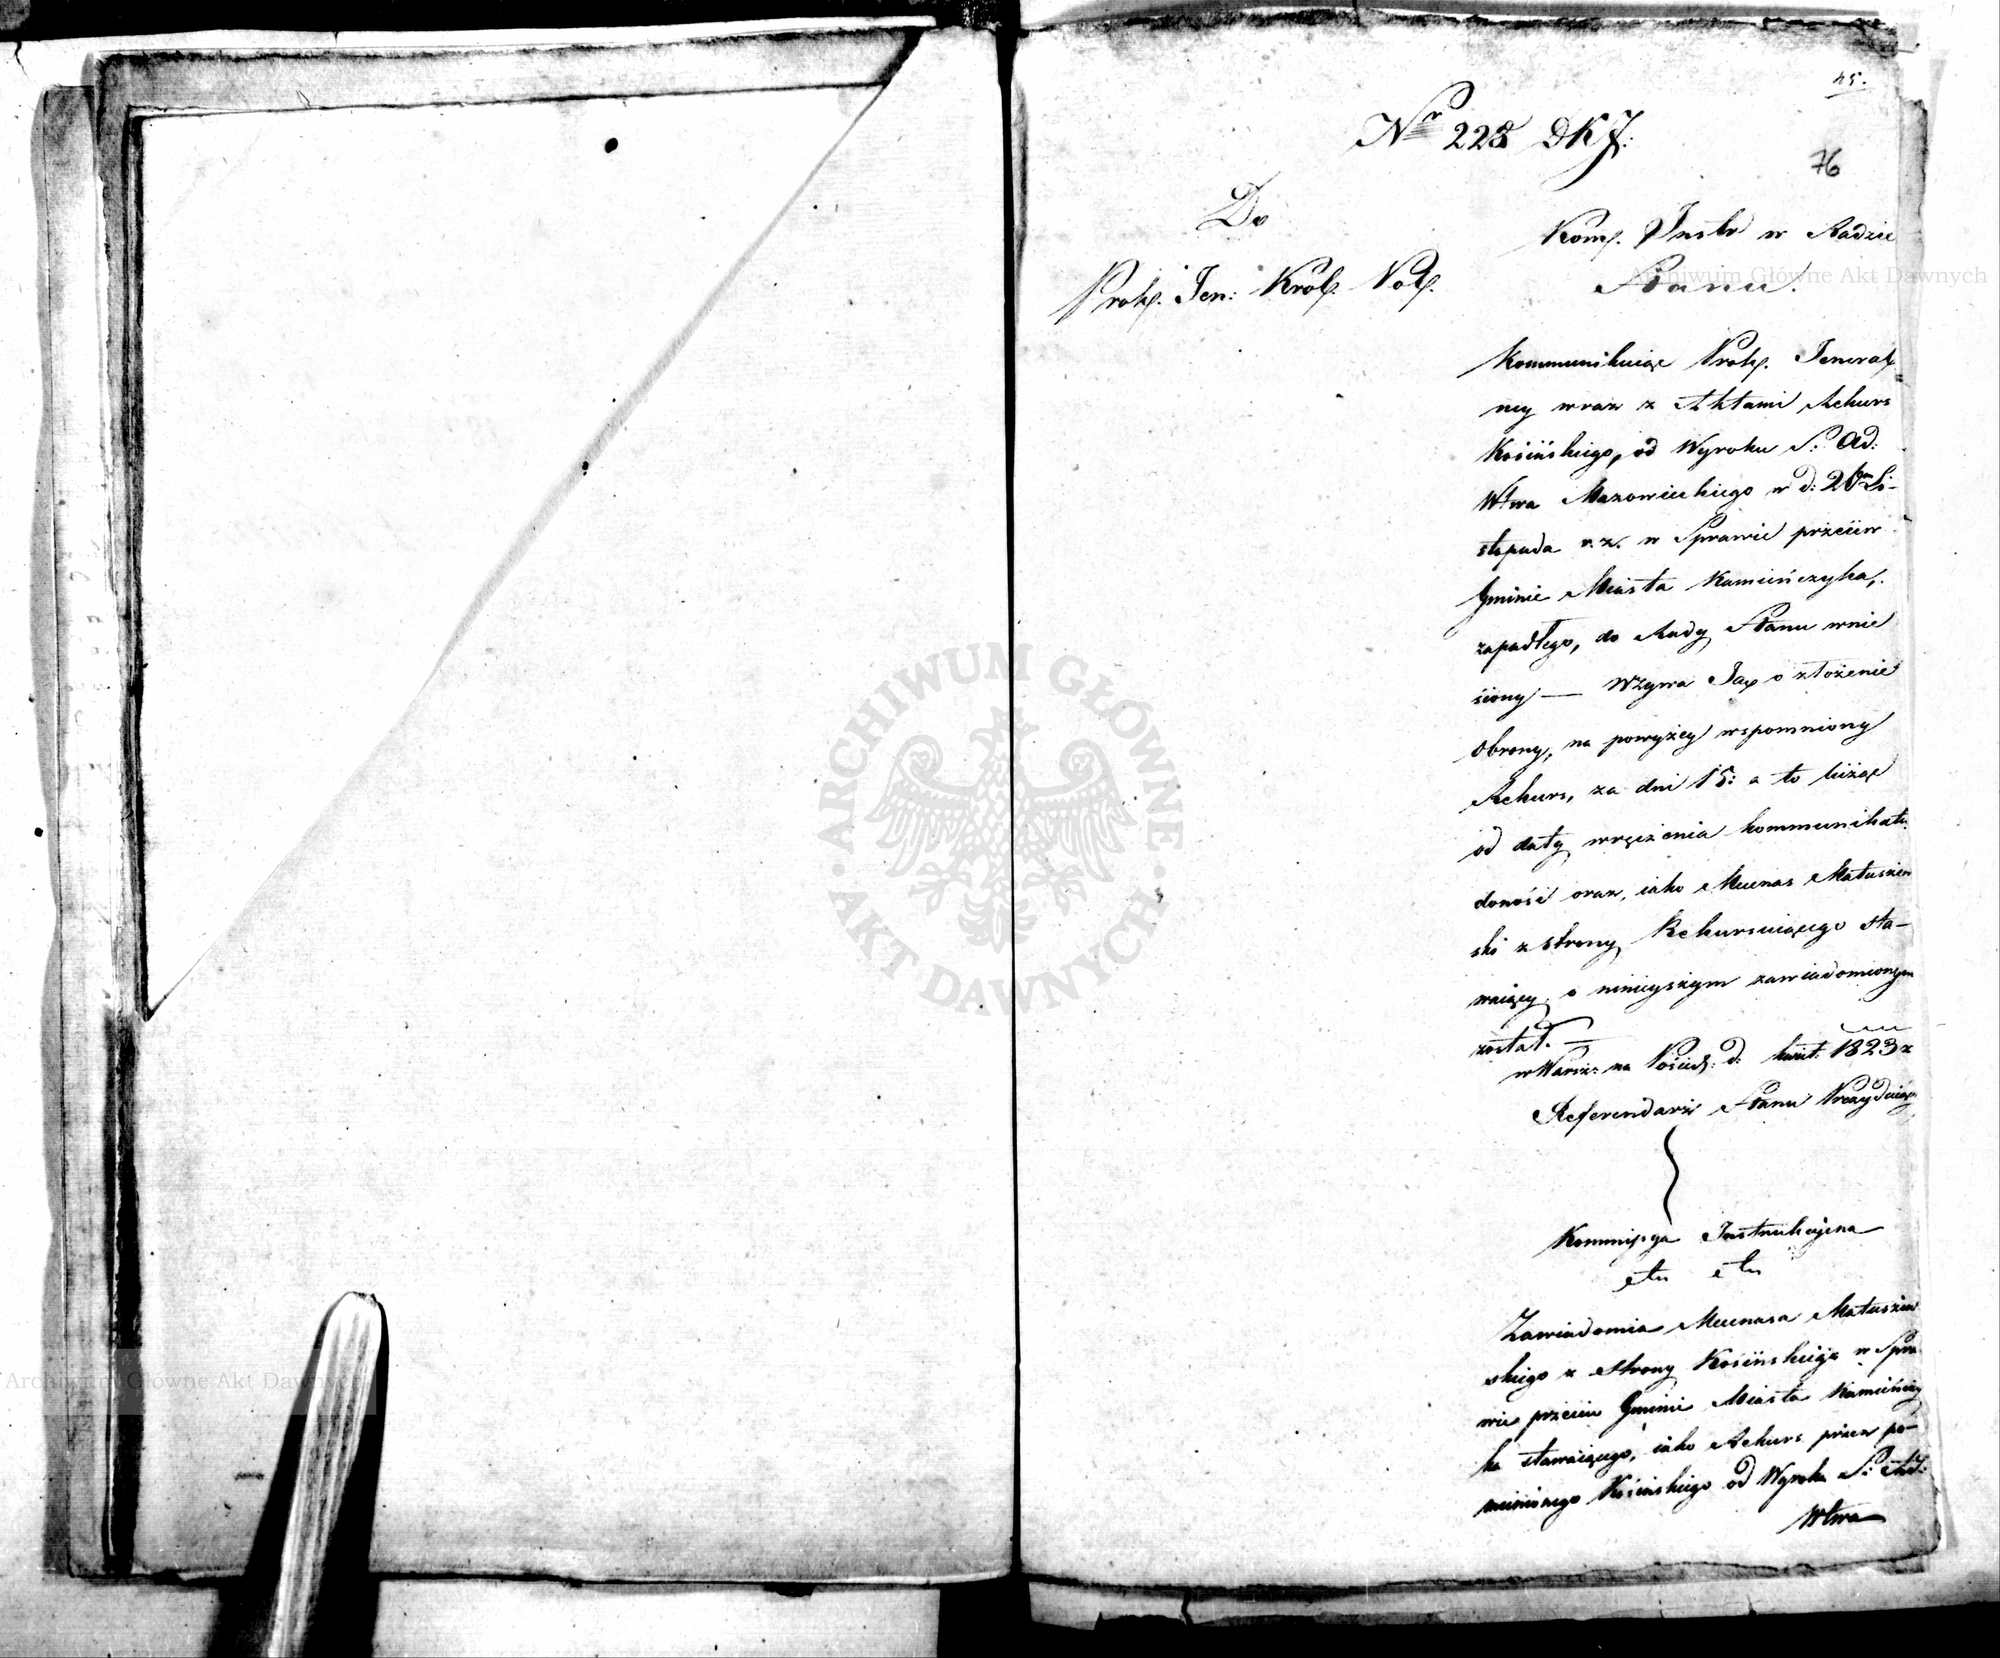 45.
Nr 228 DKJ:
76
Do
Prok. Jen: Król. Pol.
Kom. Instr w Radzie
Stanu.
Kommunikuiąc Prok. Jeneral
ney wraz z Aktami Rekurs
Kosińskiego, od Wyroku S: Ad:
Wtwa Mazowieckiego w d: Li-
stopada r.z. w Sprawie przeciw
Gminie Miasta Kamieńczyka,
zapadłego, do Rady Stanu wnie
siony — Wzywa Ją o złożenie
obrony, na powyżey wspomniony
Rekurs, za dni 15: a to licząc
od daty wręczenia kommunikatu
donosi oraz, iako Mecenas Matuszew
ski z strony Rekursuiącego sta-
waiący o ninieyszym zawiadomionym
został. —
w Warsz: na Posiedz: d: kwiet: 1823 r
Referendarz Stanu Prezyduiący
Kommissya Instrukcyina
etc etc
Zawiadomia Mecenasa Matuszew
skiego z strony Kosińskiego w Spra
wie przeciw Gminie Miasta Kamieńczy
ka stawaiącego, iako Rekurs przez po-
mienionego Kosińskiego od Wyroku S: Ad:
Wtwa
ARCHIWUM GŁÓWNE AKT DAWNYCH
Archiwum Główne Akt Dawnych
Archiwum Główne Akt Dawnych